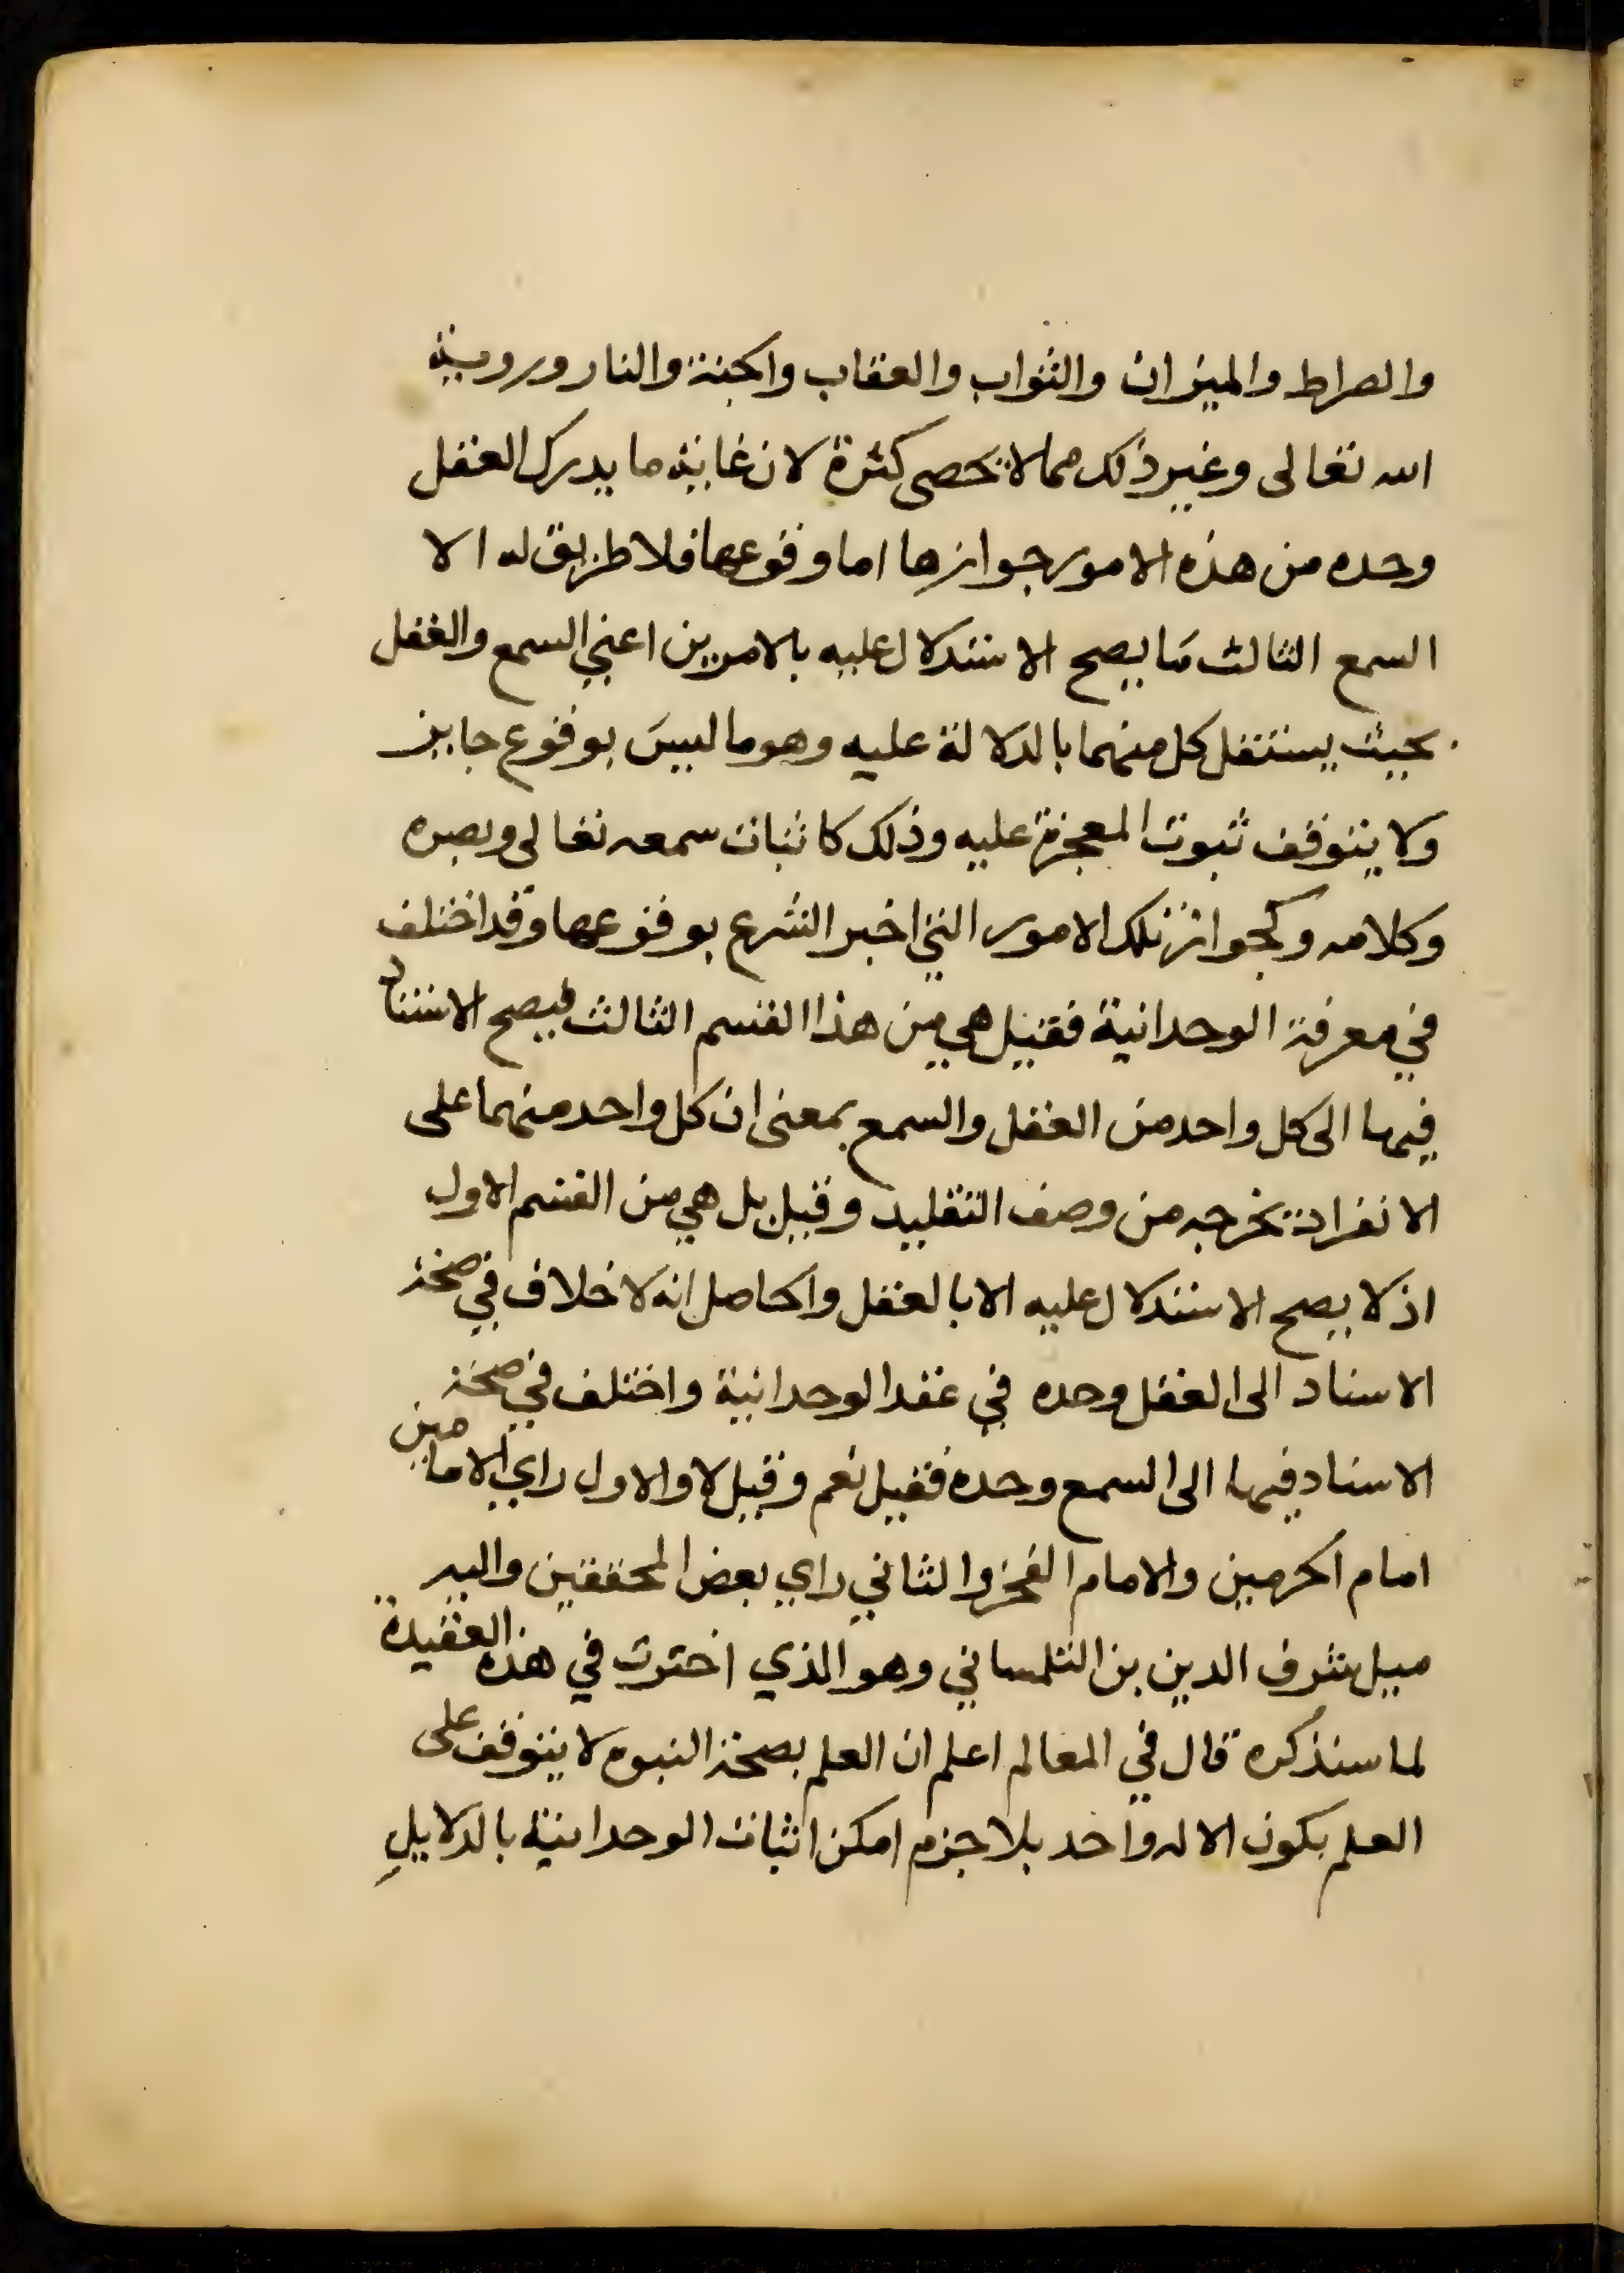 والصراط والميزان والثواب والعقاب والجنة والنار وروية
الله تعالى وغير ذلك مما لا تحصى كثرة لان غاية ما يدرك العقل
وحده من هذه الامور جوازها اما وقوعها فلا طريق له الا
السمع الثالث ما يصح الاستدلال عليه بالامرين اعني السمع والعقل
بحيث يستقل كل منهما بالدلالة عليه وهو ما ليس بوقوع جايز
ولا يتوقف ثبوت المعجزة عليه وذلك كاثبات سمعه تعالى وبصره
وكلامه وكجواز تلك الامور التي اخبر الشرع بوقوعها وقد اختلف
في معرفة الوحدانية فقيل هي من هذا القسم الثالث فيصح الاستناد
فيها الى كل واحد من العقل والسمع بمعنى ان كل واحد منهما على
الانفراد يخرجه من وصف التقليد وقيل بل هي من القسم الاول
اذ لا يصح الاستدلال عليه الا بالعقل والحاصل انه لا خلاف في صحة
الاسناد الى العقل وحده في عقد الوحدانية واختلف في صحة
الاسناد فيها الى السمع وحده فقيل نعم وقيل لا والاول راي الامامين
امام الحرمين والامام الفخر والثاني راي بعض المحققين واليه
ميل شرف الدين بن التلمساني وهو الذي اخترت في هذه العقيدة
لما سنذكره قال في المعالم اعلم ان العلم بصحة النبوه لا يتوقف على
العلم بكون الاله واحد بلا جزم امكن اثبات الوحدانية بالدلايل